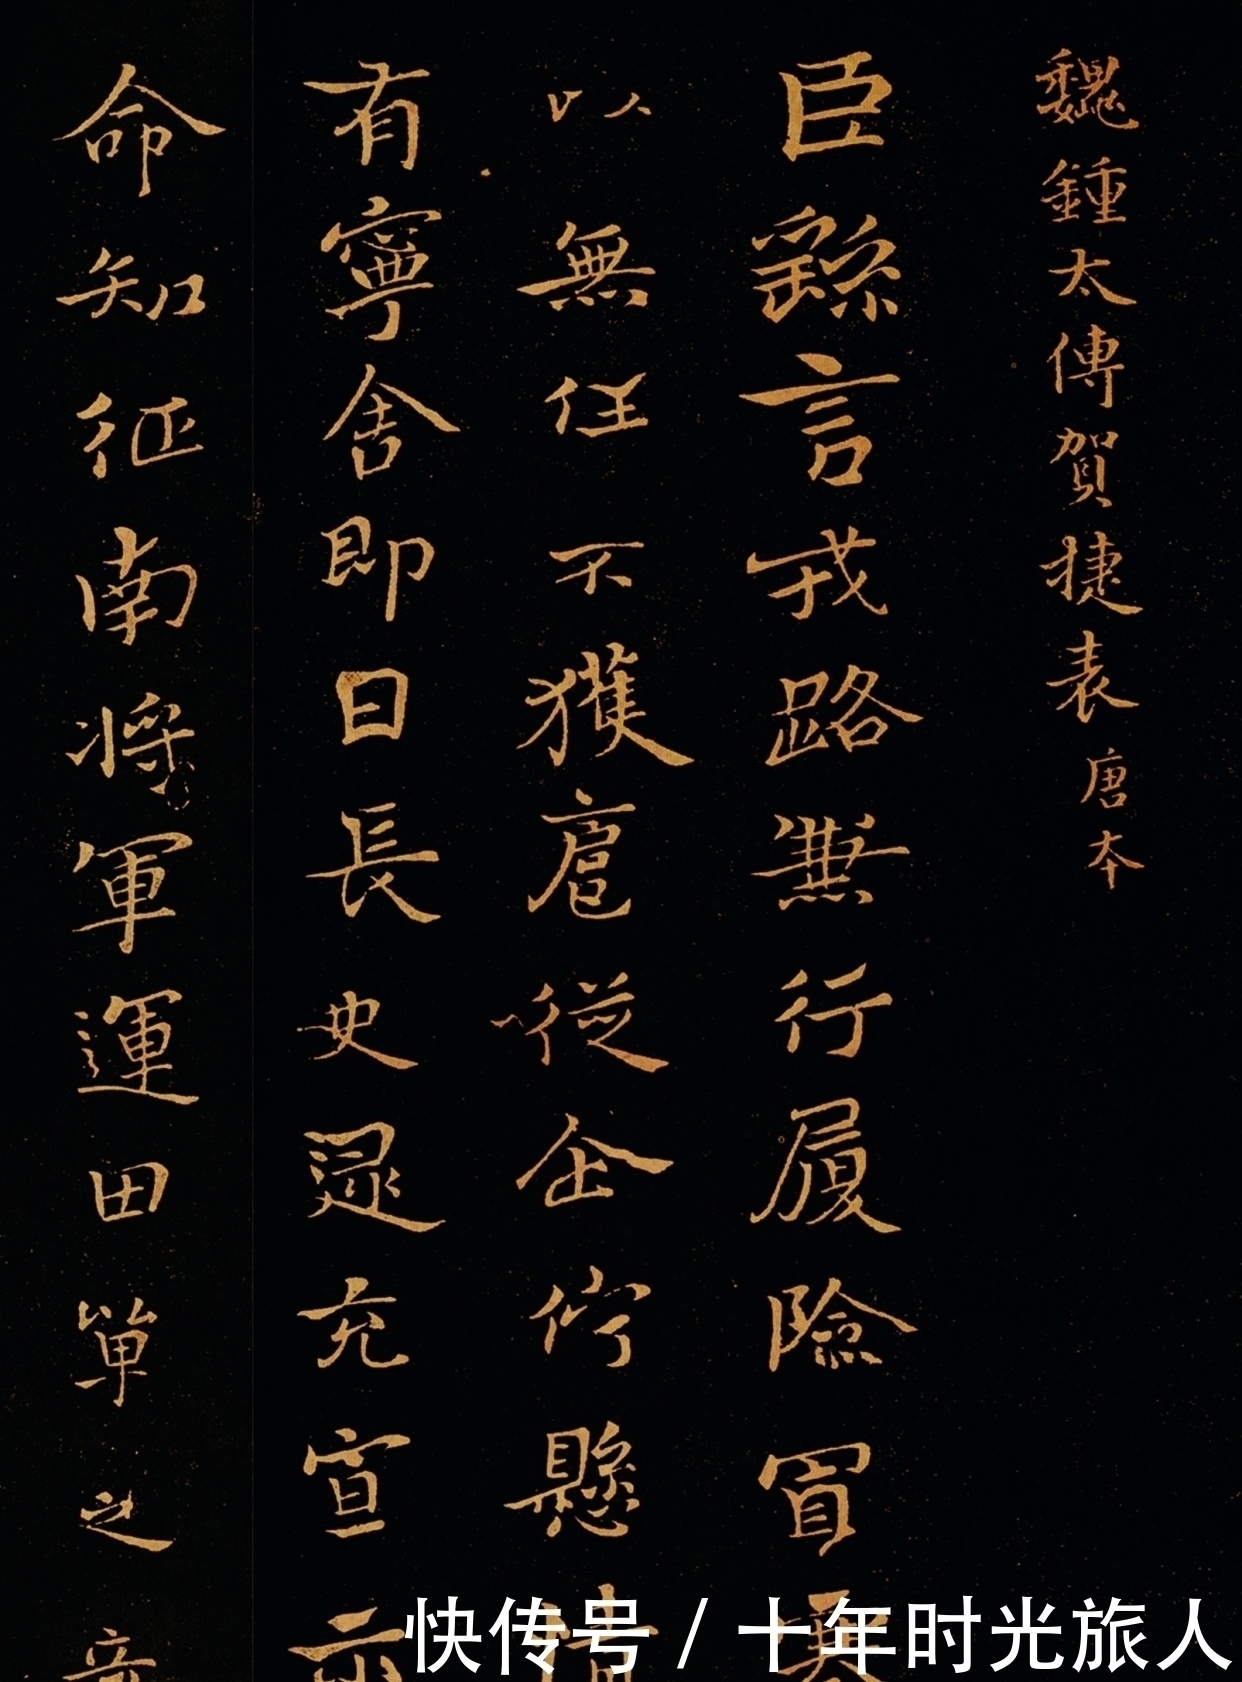 魏鍾太傅賀捷表 唐本
臣繇言戎路兼行履險冒寒
以無任不獲扈從企佇懸情
有寧舍即日長史逯充宣示
命知征南將軍運田單之奇
快传号 / 十年时光旅人